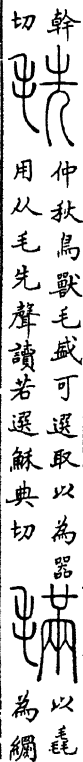 幹
切
毨
仲秋鳥獸毛盛可選取以為器
用从毛先聲讀若選穌典切
𣯩
以毳
為繝